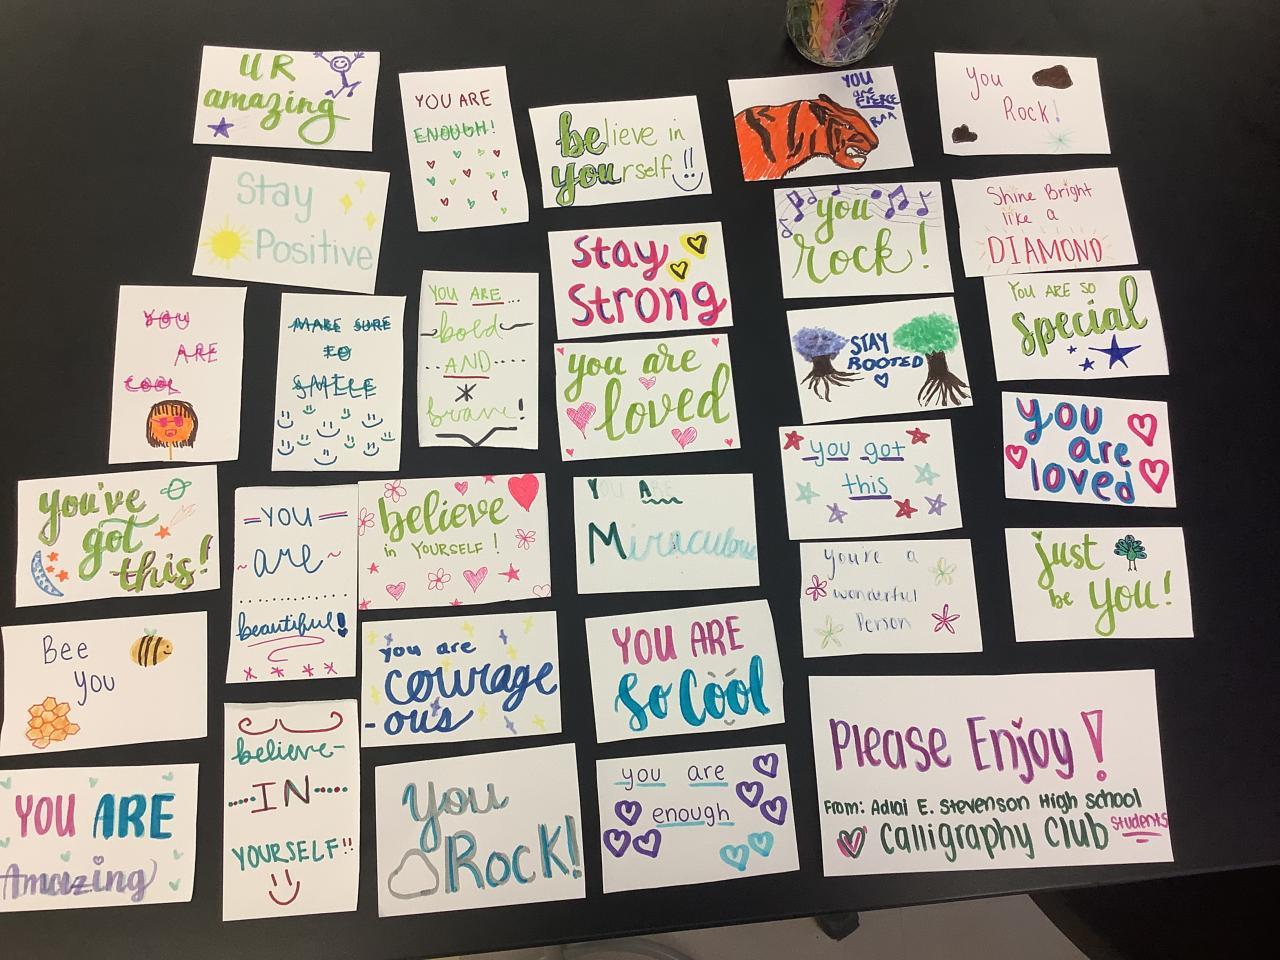 UR
amazing
YOU ARE
ENOUGH!
believe in
yourself!!
YOU
are
FIERCE
RAA
You
Rock!
Stay
Positive
Stay
Strong
you
rock!
Shine Bright
like a
DIAMOND
YOU
ARE
COOL
MAKE SURE
TO
SMILE
YOU ARE...
bold
AND....
brave!
you are
loved
STAY
ROOTED
YOU ARE SO
special
you've
got
this!
=YOU=
~are~
beautiful!
believe
in YOURSELF!
YOU ARE
Miraculous
you got
this
you
are
loved
Bee
you
you are
courage
-ous
YOU ARE
So Cool
You're a
wonderful
Person
just
be you!
YOU ARE
Amazing
believe-
IN
YOURSELF!!
You
Rock!
you are
enough
Please Enjoy!
From: Adlai E. Stevenson High School
Calligraphy Club Students